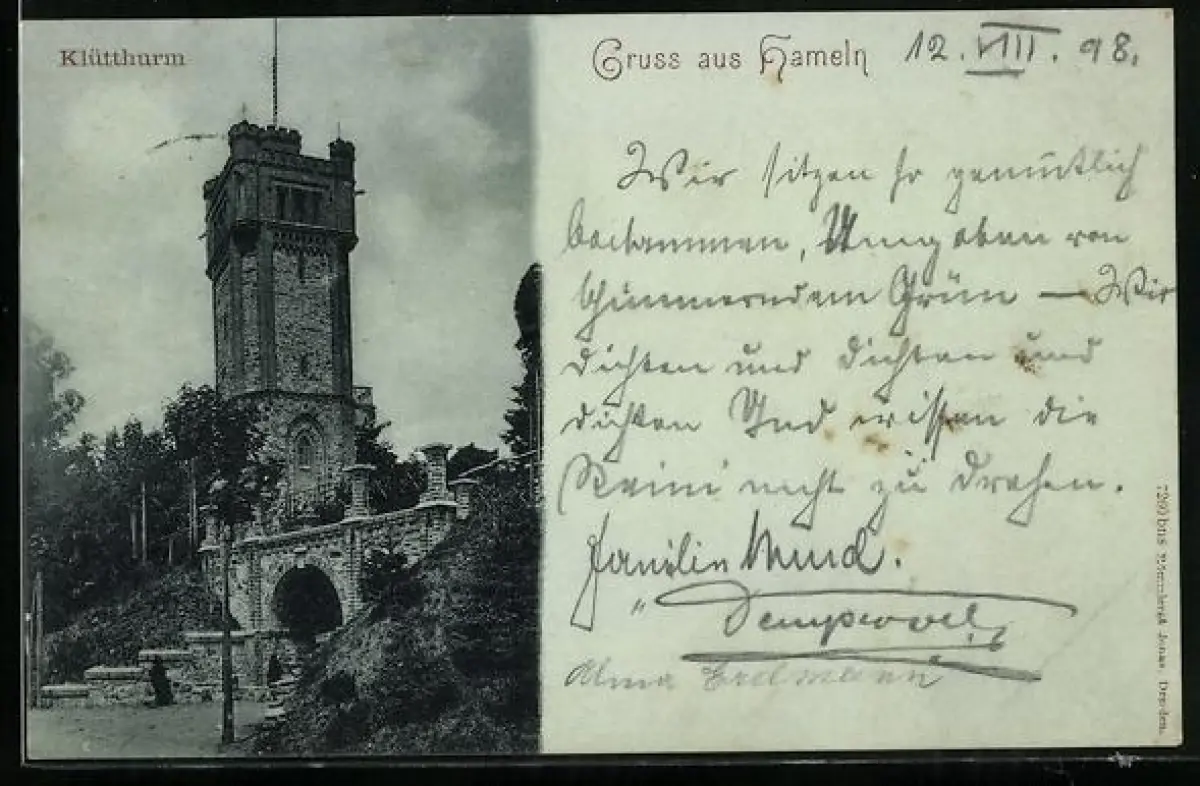 Klütthurm
Gruss aus Hameln
12. VIII. 98.
Wir sitzen so gemütlich
beisammen, Umgeben von
schimmerndem Grün — Wir
dichten und dichten und
dichten Und wissen die
nicht zu drehen.
Familie Mund.
Alma Erdmann
Dresden.